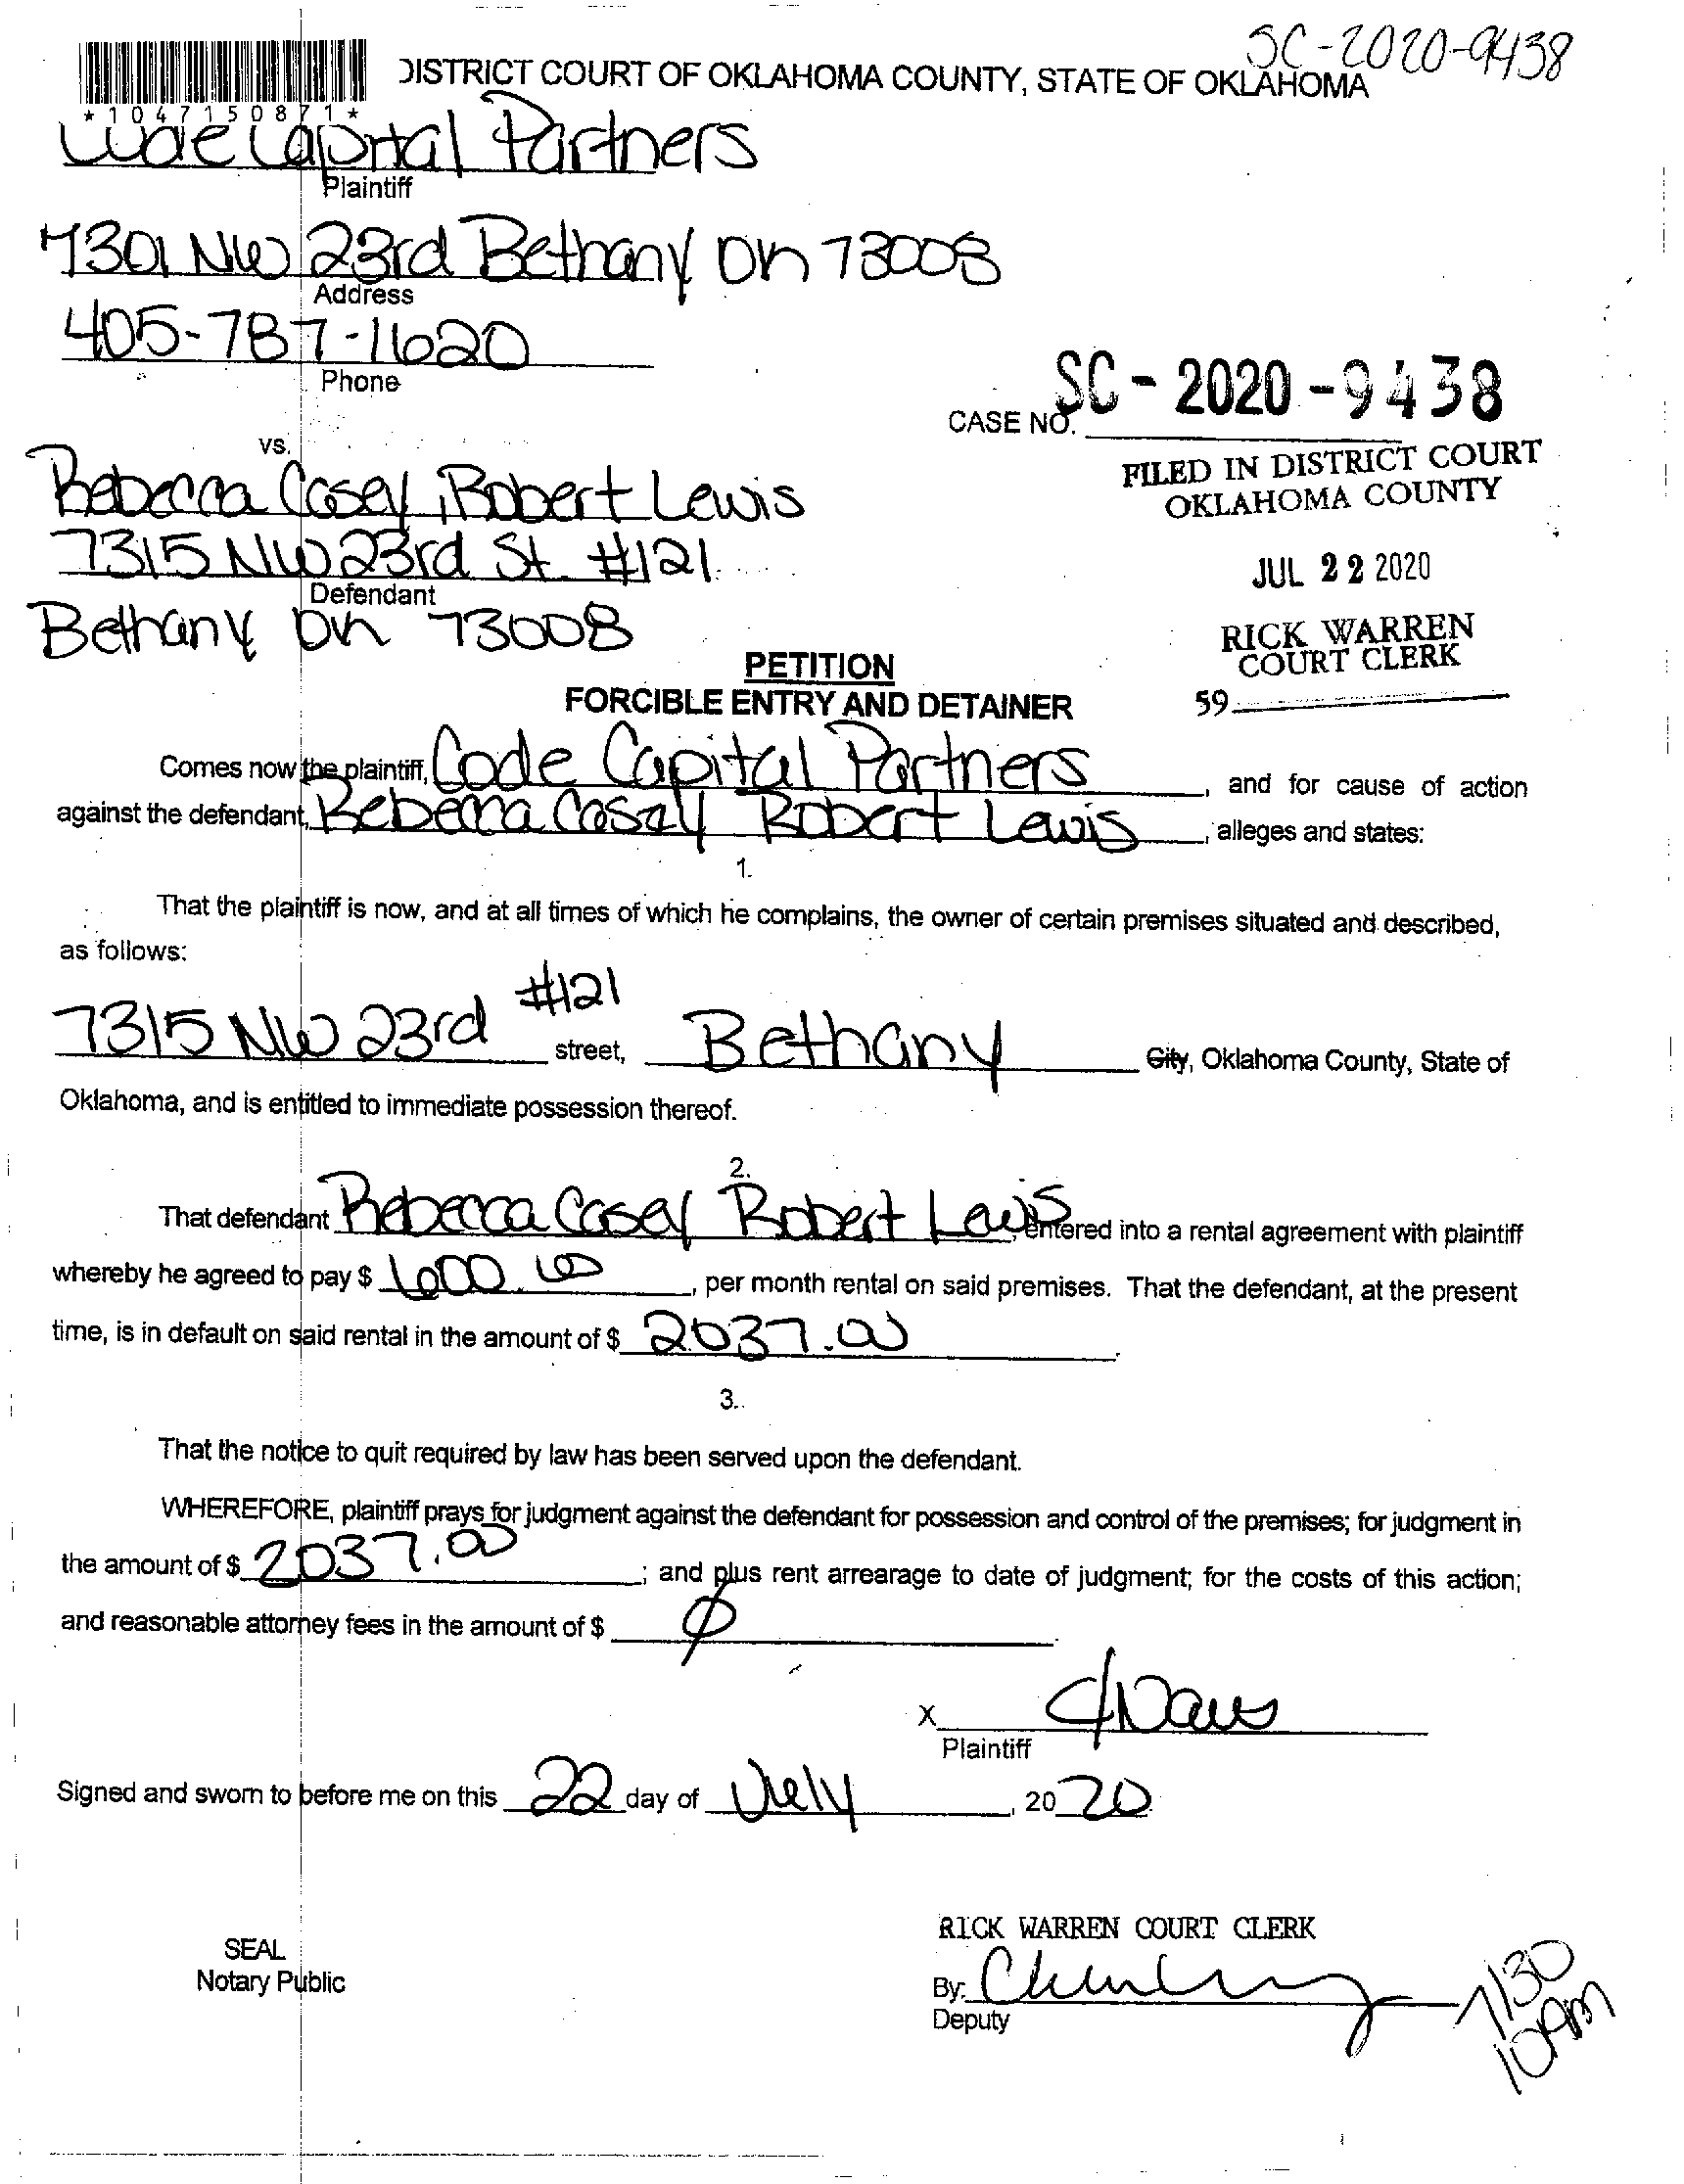 SC-2020-9438
DISTRICT COURT OF OKLAHOMA COUNTY, STATE OF OKLAHOMA
*1047150871*
Code Capital Partners
Plaintiff
7301 NW 23rd Bethany OK 73008
Address
405-787-1620
Phone
CASE NO. SC-2020-9438
vs.
FILED IN DISTRICT COURT
OKLAHOMA COUNTY
Rebecca Casey, Robert Lewis
7315 NW 23rd St. #121
JUL 22 2020
Defendant
Bethany OK 73008
RICK WARREN
COURT CLERK
PETITION
FORCIBLE ENTRY AND DETAINER
59
Comes now the plaintiff, Code Capital Partners, and for cause of action
against the defendant, Rebecca Casey Robert Lewis, alleges and states:
1.
That the plaintiff is now, and at all times of which he complains, the owner of certain premises situated and described,
as follows:
7315 NW 23rd #121 street, Bethany City, Oklahoma County, State of
Oklahoma, and is entitled to immediate possession thereof.
2.
That defendant Rebecca Casey Robert Lewis, entered into a rental agreement with plaintiff
whereby he agreed to pay $ 600.00, per month rental on said premises. That the defendant, at the present
time, is in default on said rental in the amount of $ 2037.00.
3.
That the notice to quit required by law has been served upon the defendant.
WHEREFORE, plaintiff prays for judgment against the defendant for possession and control of the premises; for judgment in
the amount of $ 2037.00; and plus rent arrearage to date of judgment; for the costs of this action;
and reasonable attorney fees in the amount of $ Ø
X
Plaintiff
Signed and sworn to before me on this 22 day of July, 2020
RICK WARREN COURT CLERK
SEAL
Notary Public
By:
Deputy
7/30
10AM